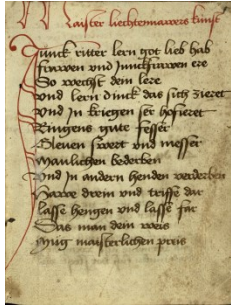 Maister liechtenawers kunst
Junck ritter lern got lieb hab
frawen und Junckfrawen ere
So wechst dein lere
und lern dinck das sich zieret
und In kriegen ser hofieret
Ringens gute fesser
Gleuen swert und messer
Manlichen bederben
Und In andern henden verderben
Hawe drein und triffe dar
lasse hengen und lasse far
Das man dein weis
Mug maisterlichen preis